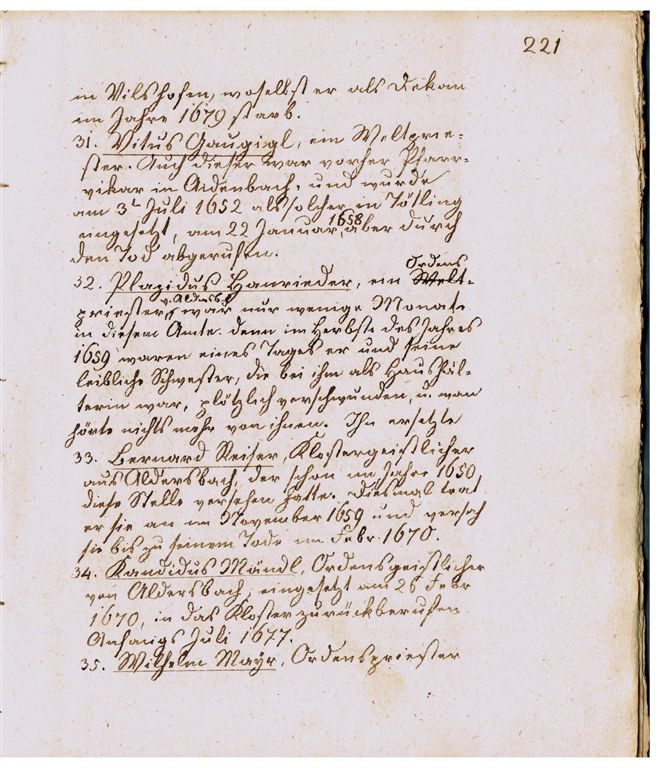 221
in Vilshofen, woselbst er als Dekan
im Jahre 1679 starb.
31. Vitus Gaugigl, ein Weltprie-
ster. Auch dieser war vorher Pfarr-
vikar in Aidenbach, und wurde
am 3t Juli 1652 als solcher in Tötling
eingesetzt, am 22 Januar 1658 aber durch
den Tod abgerufen.
32. Plazidus Hanrieder, ein Ordens
priester, v. Aldersb. war nur wenige Monate
in diesem Amte. Denn im Herbste des Jahres
1659 waren eines Tages er und seine
leibliche Schwester, die bei ihm als Haushäl-
terin war, plötzlich verschwunden, u. man
hörte nichts mehr von ihnen. Ihn ersetzte
33. Bernard Reiser, Klostergeistlicher
aus Aldersbach, der schon im Jahre 1650
diese Stelle versehen hatte. Diesmal trat
er sie an im November 1659 und versah
sie bis zu seinem Tode im Febr. 1670.
34. Kandidus Mändl, Ordensgeistlicher
von Aldersbach, eingesetzt am 26 Febr
1670, in das Kloster zurückberufen
Anfangs Juli 1677.
35. Wilhelm Mayr, Ordenspriester